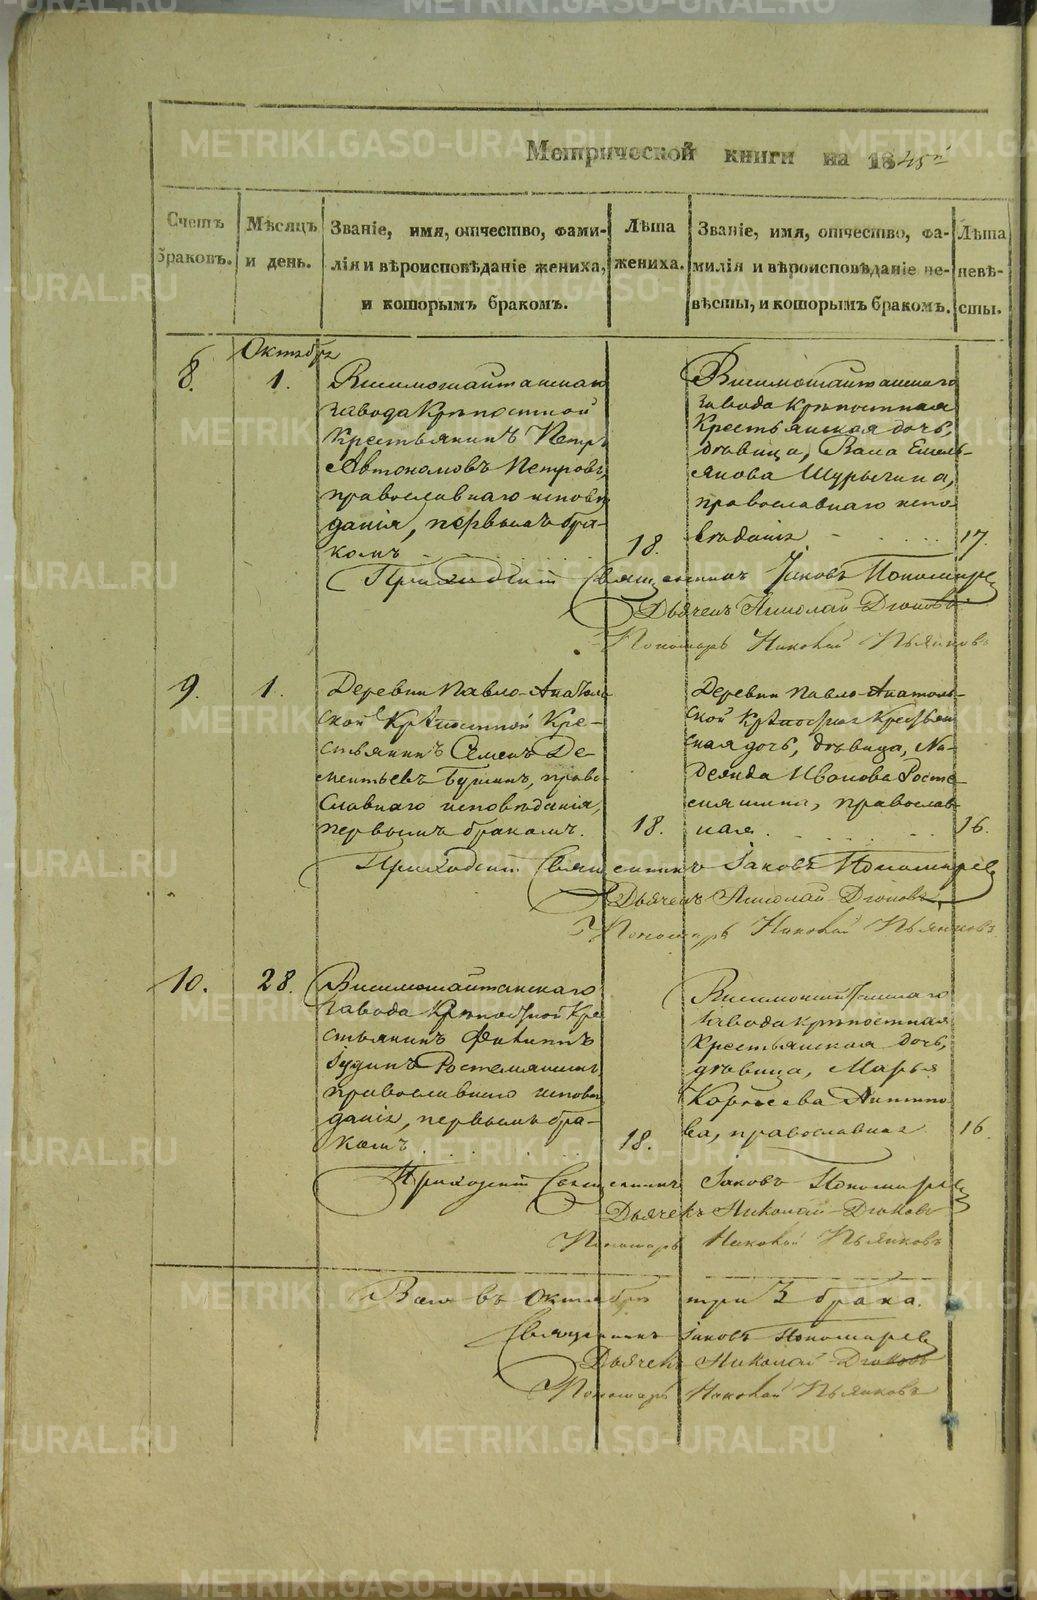 Метрической книги на 1845 г.
Счетъ браковъ.
Мѣсяцъ и день.
Званіе, имя, отчество, фами-
лія и вѣроисповѣданіе жениха,
и которымъ бракомъ.
Лѣта жениха.
Званіе, имя, отчество, фа-
милія и вѣроисповѣданіе не-
вѣсты, и которымъ бракомъ.
Лѣта невѣ-
сты.
Октября
8.
1.
Висимошайтанскаго
завода Крѣпостной
Крестьянинъ Петръ
Автономовъ Петровъ,
православнаго исповѣ
данія, первымъ бра-
комъ
18.
Висимошайтанскаго
завода крѣпостная
Крестьянская дочь,
дѣвица, Васса Емель-
янова
православнаго испо-
вѣданія
17.
Приходскій Священникъ Іаковъ Пономаревъ
Дьячекъ Николай Дюковъ
Пономарь Николай Пьянковъ
9.
1.
Деревни Павло-Анатоль
ской Крѣпостной Кре-
стьянинъ Семенъ Де-
ментьевъ православнаго
исповѣданія,
первымъ бракомъ.
18.
Деревни Павло-Анатоль-
ской крѣпостная Крестьян
ская дочь, дѣвица, На-
дежда Иванова
православ
ная
16.
Приходскій Священникъ Іаковъ Пономаревъ
Дьячекъ Николай Дюковъ
Пономарь Николай Пьянковъ
10.
28.
Висимошайтанскаго
завода Крѣпостной Кре
стьянинъ Филиппъ
Іудинъ
православнаго исповѣ
данія, первымъ бра-
комъ
18.
Висимошайтанскаго
завода крѣпостная
Крестьянская дочь,
дѣвица, Марья
Антипо
ва, православная
16.
Приходскій Священникъ Іаковъ Пономаревъ
Дьячекъ Николай Дюковъ
Пономарь Николай Пьянковъ
Всего въ Октябрѣ три 3 брака.
Священникъ Іаковъ Пономаревъ
Дьячекъ Николай Дюковъ
Пономарь Николай Пьянковъ
METRIKI.GASO-URAL.RU